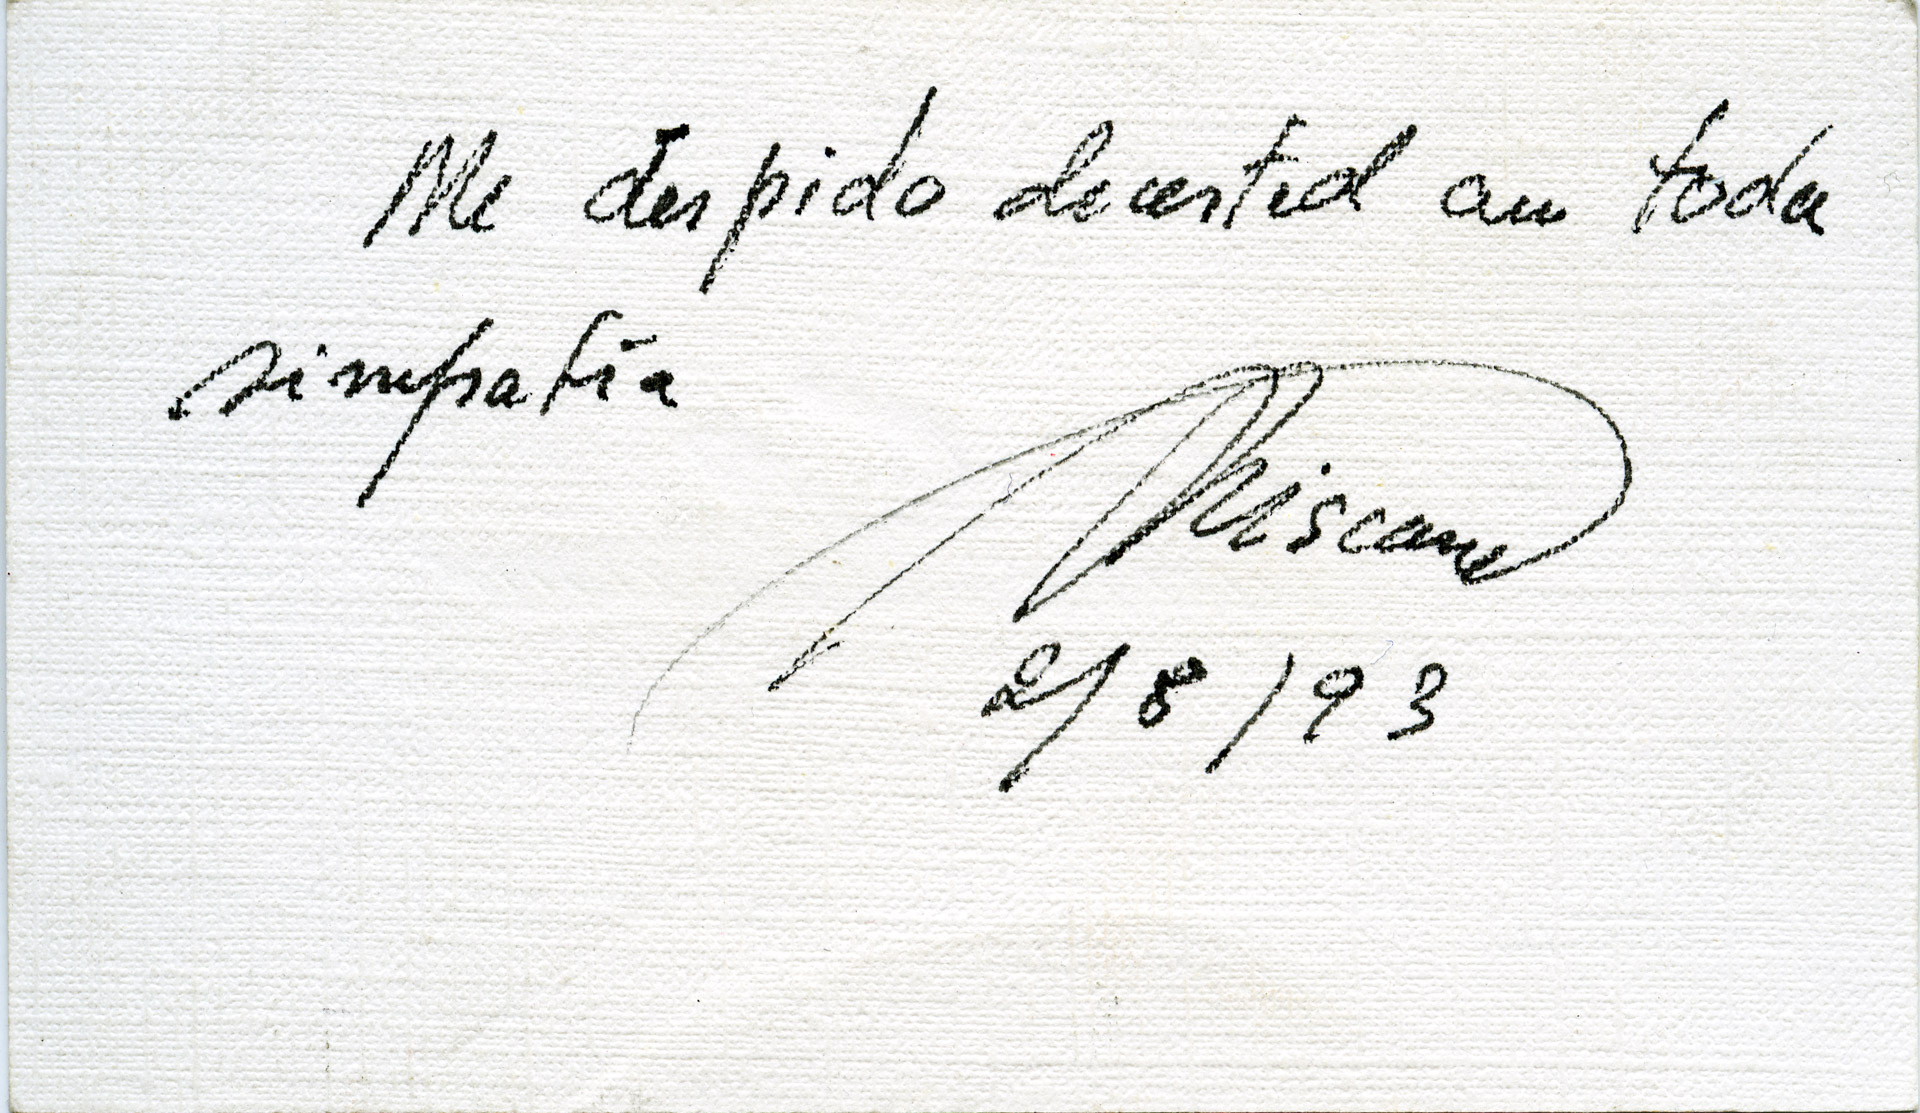 Me despido de usted con toda
simpatía
2/8/93